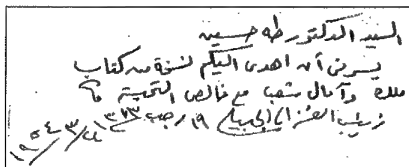 السيد الدكتور طه حسين
يسرني أن أهدى اليكم نسخة من كتاب
وآمال شعب مع خالص التحية
زينب الغزالي الجبيلي ١٩ رجب ١٣٧٣
٢٤/٣/١٩٥٤